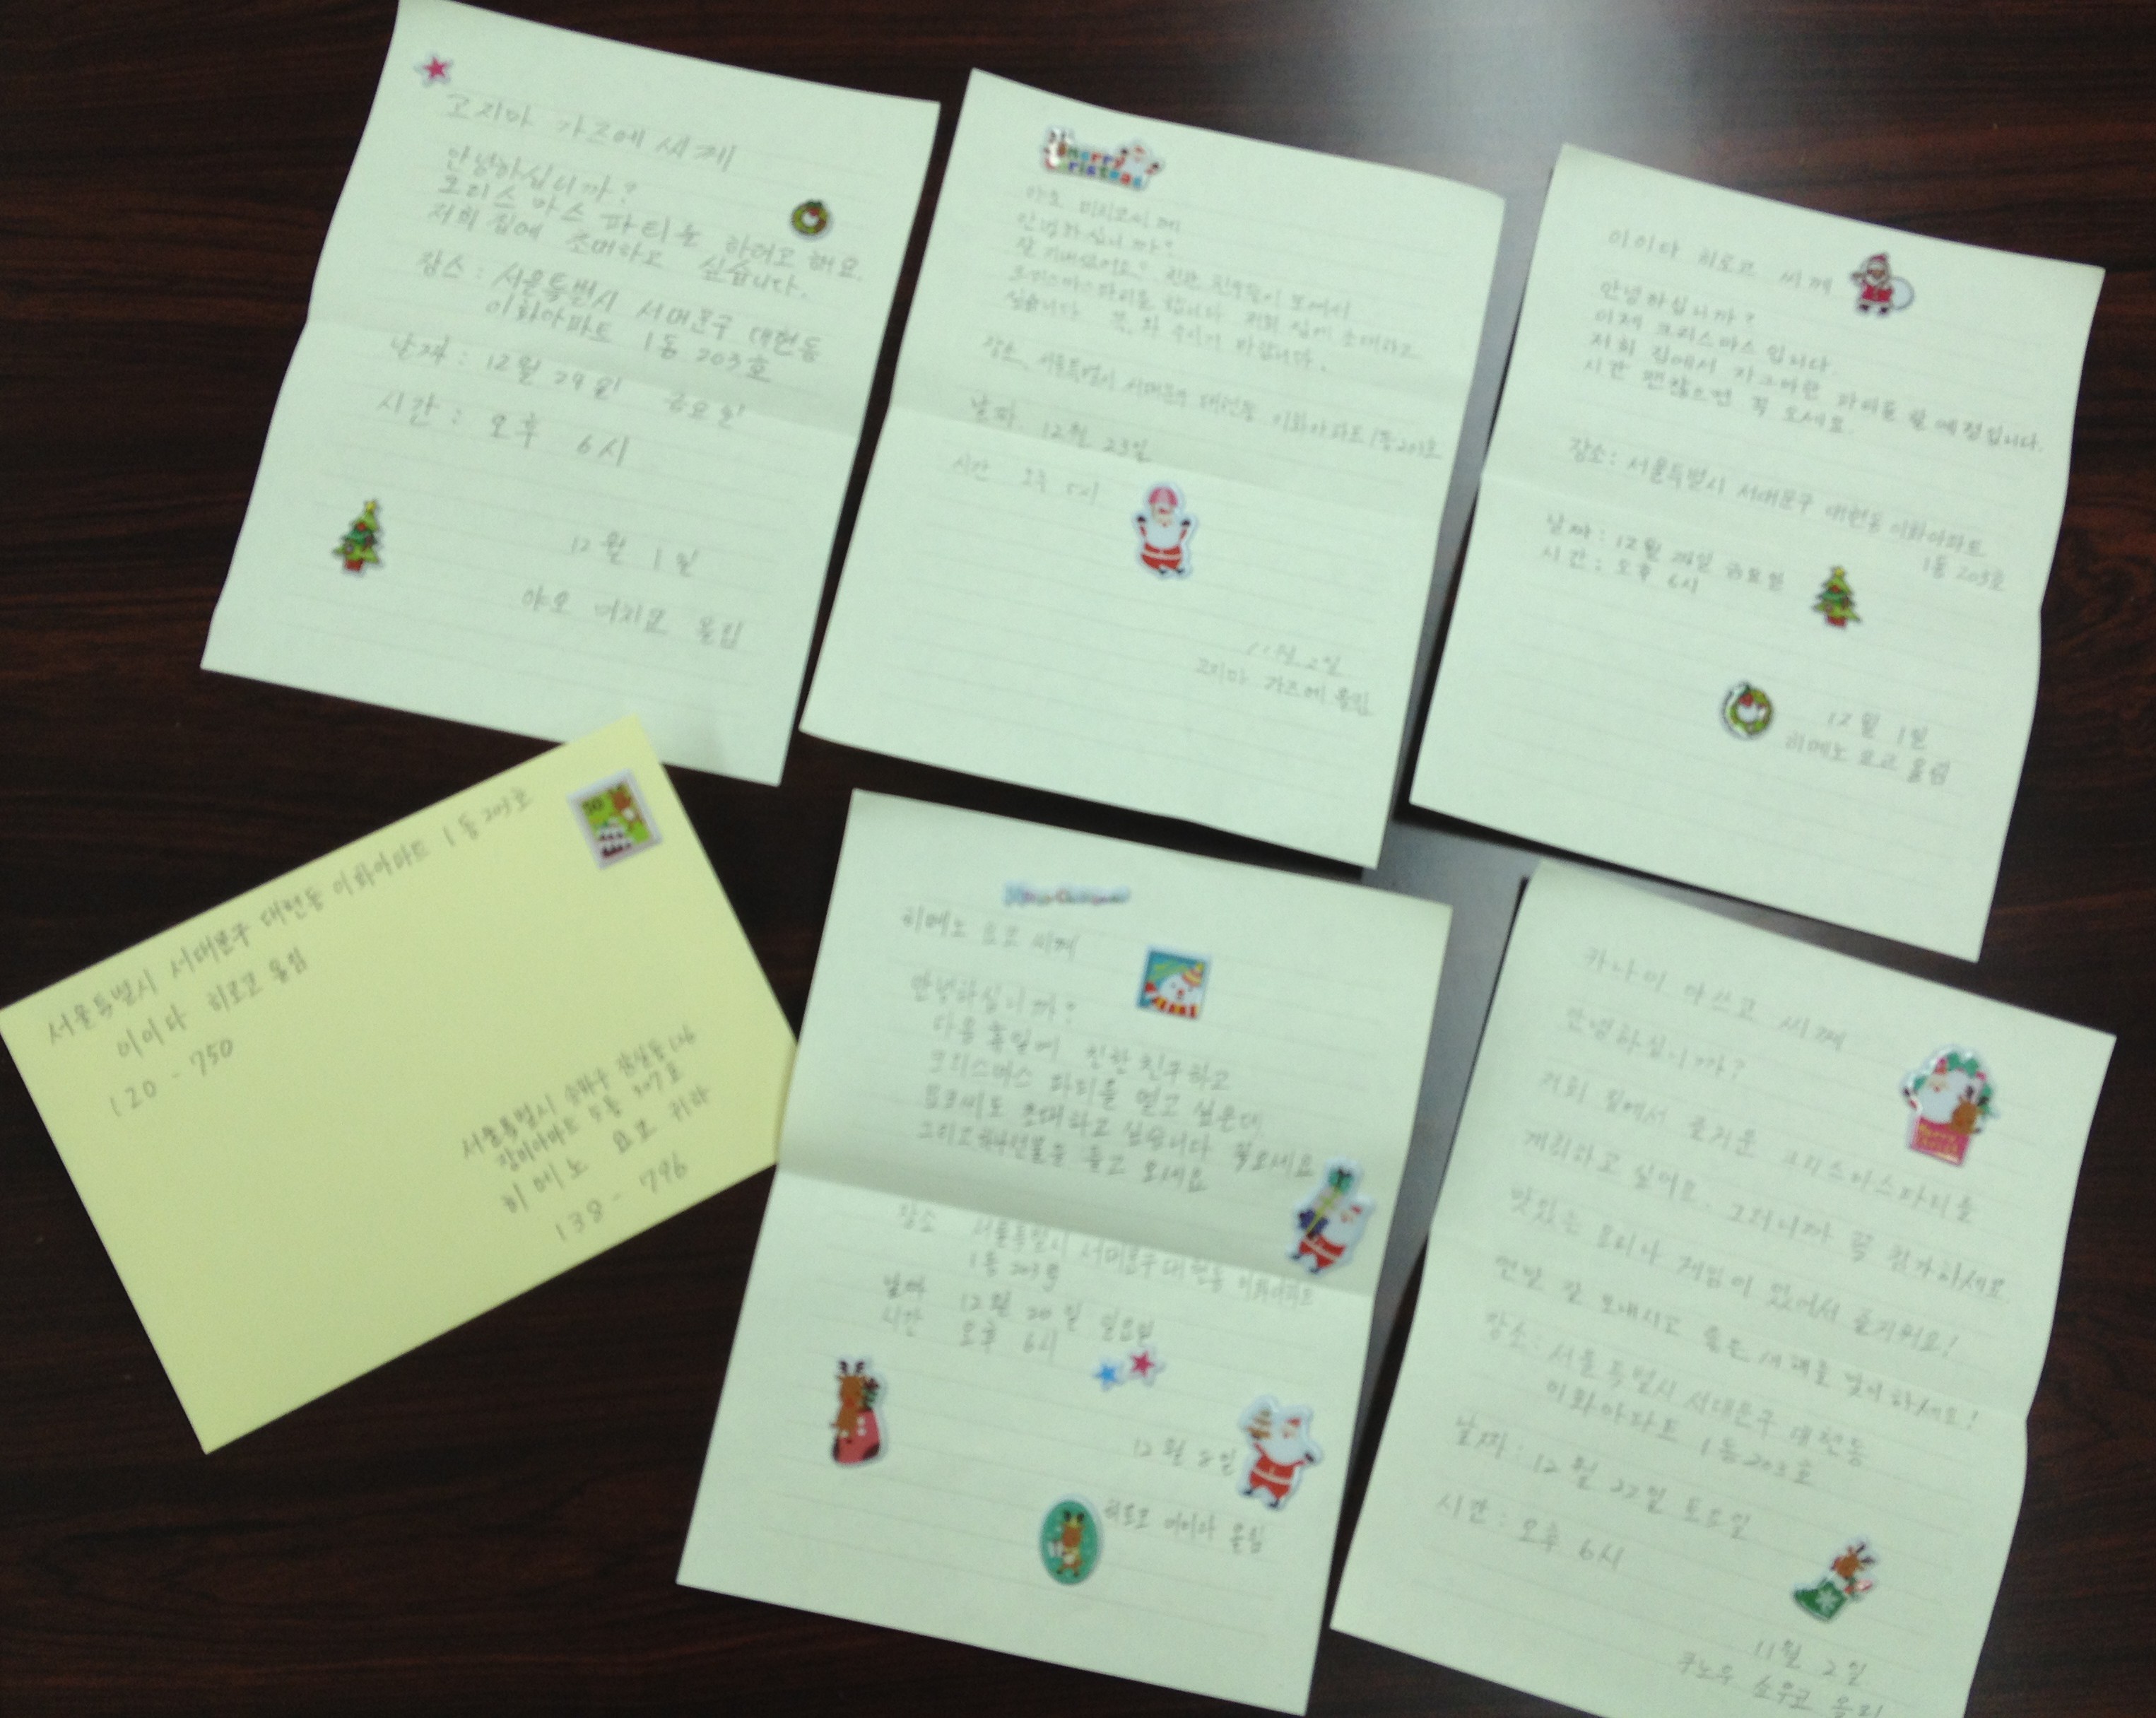 고지마 가즈에 씨께
안녕하십니까?
크리스마스 파티를 하려고 해요.
저희 집에 초대하고 싶습니다.
장소 : 서울특별시 서대문구 대현동
이화아파트 1동 203호
날짜 : 12월 29일 금요일
시간 : 오후 6시
12월 1일
야오 올림
Merry Christmas
야오 씨께
안녕하십니까?
잘 지내셨어요? 친한 친구들이 모여서
크리스마스파티를 합니다 저희 집에 초대하고
싶습니다 꼭 와 주시기 바랍니다.
장소. 서울특별시 서대문구 대현동 이화아파트 1동 203호
날짜. 12월 23일
시간 오후
2일
고지마 가즈에 올림
이이다 히로코 씨께
안녕하십니까?
이제 크리스마스 입니다.
저희 집에서 자그마한 파티를 할 예정입니다.
시간 괜찮으면 꼭 오세요.
장소 : 서울특별시 서대문구 대현동 이화아파트
1동 203호
날짜 : 12월 금요일
시간 : 오후 6시
12월 1일
히메노 요코 올림
서울특별시 서대문구 대현동 이화아파트 1동 203호
이이다 히로코 올림
120-750
서울특별시 송파구 잠실동
장미아파트 5동
히메노 요코 귀하
138-796
히메노 요코 씨께
안녕하십니까?
다음 에 친한 친구하고
크리스마스 파티를 열고 싶은데,
초대하고 싶습니다 꼭오세요
그리고 선물을 들고 오세요
장소 서울특별시 서대문구 대현동 이화아파트
1동 203호
날짜 12월 20일 일요일
시간 오후 6시
12월 8일
히로코 이이다 올림
카나이 아쓰코 씨께
안녕하십니까?
저희 집에서 즐거운 크리스마스파티를
개최하고 싶어요. 그러니까 꼭 참가하세요
맛있는 요리나 게임이 있어서 즐거워요!
연말 잘 보내시고 좋은 새해를 맞이하세요!
장소 : 서울특별시 서대문구 대현동
이화아파트 1동 203호
날짜 : 12월 22일 토요일
시간 : 오후 6시
11월 2일
올림